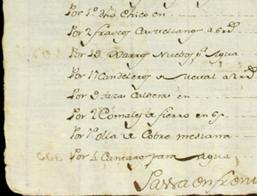 Por 1º año Chico en
Por 2 frascos Castellanos a 6 rs
Por 10 Barros Nuebos pª Agua
Por 17 Candeleros de Metal a 2 rs
Por 2 Calderas en
Por 2 Comales de fierro en 6 ps
Por 1ª olla de Cobre mediana
Por 1 Cantaro para Agua
Passa en frente